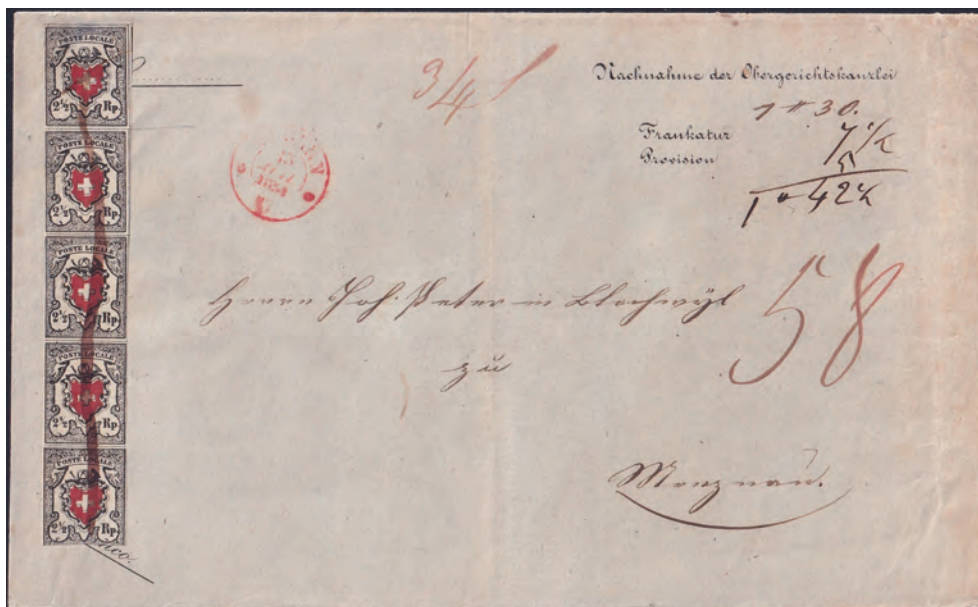 POSTE LOCALE
2½ Rp
2½ Rp
POSTE LOCALE
2½ Rp
POSTE LOCALE
2½ Rp
POSTE LOCALE
2½ Rp
3/4
Nachnahme der Obergerichtskanzlei
1 " 30.
Frankatur 7 ½
Provision 5
1 " 42½
Herrn Joh: Peter in
58
zu
Menznau.